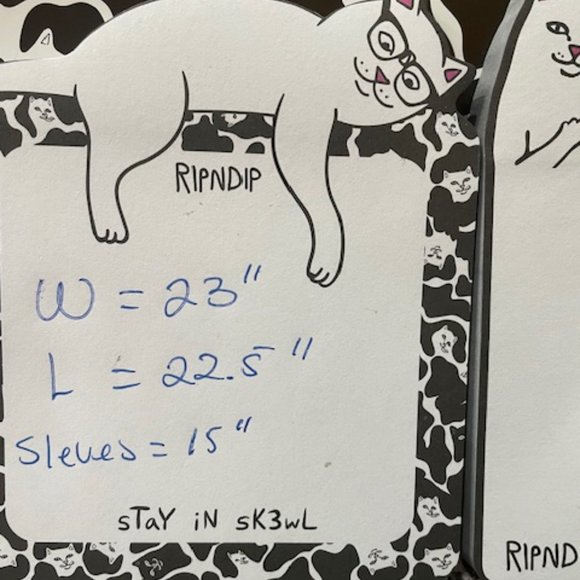 RIPNDIP
W = 23"
L = 22.5"
Sleves = 15"
STaY iN SK3WL
RIPND